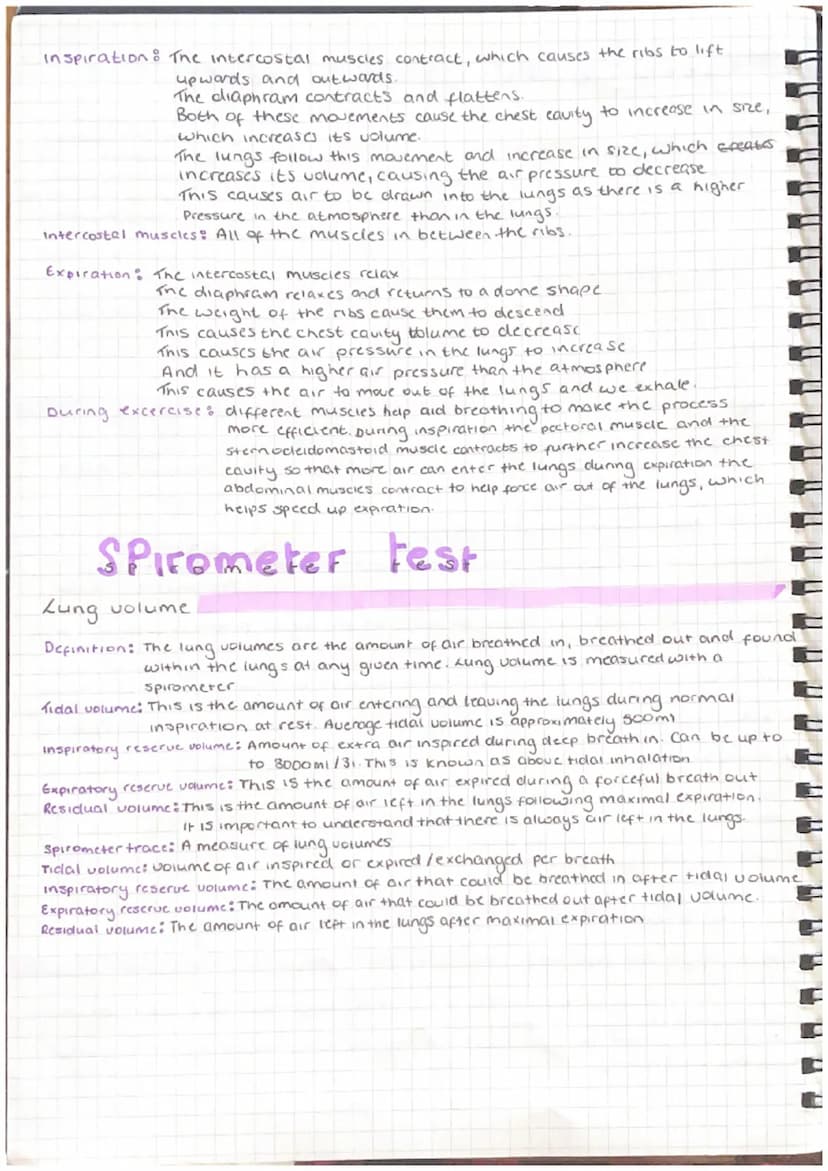 Inspiration: The intercostal muscles contract, which causes the ribs to lift
upwards and outwards.
The diaphram contracts and flattens.
Both of these movements cause the chest cavity to increase in size,
which increases its volume.
The lungs follow this movement and increase in size, which creates
increases its volume, causing the air pressure to decrease
This causes air to be drawn into the lungs as there is a higher
Pressure in the atmosphere than in the lungs.
Intercostal muscles: All of the muscles in between the ribs.
Expiration: The intercostal muscles relax
The diaphram relaxes and returns to a dome shape
The weight of the ribs cause them to descend
This causes the chest cavity volume to decrease
This causes the air pressure in the lungs to increase
And it has a higher air pressure than the atmosphere
This causes the air to move out of the lungs and we exhale.
During excercise: different muscles help aid breathing to make the process
more efficient. During inspiration the pectoral muscle and the
sternocleidomastoid muscle contracts to further increase the chest
cavity so that more air can enter the lungs during expiration the
abdominal muscles contract to help force air out of the lungs, which
helps speed up expiration.
Spirometer test
Lung volume
Definition: The lung volumes are the amount of air breathed in, breathed out and found
within the lungs at any given time. Lung volume is measured with a
spirometer
Tidal volume: This is the amount of air entering and leaving the lungs during normal
inspiration at rest. Average tidal volume is approximately 500ml
Inspiratory reserve volume: Amount of extra air inspired during deep breath in. Can be up to
to 3000ml/3l. This is known as above tidal inhalation
Expiratory reserve volume: This is the amount of air expired during a forceful breath out
Residual volume: This is the amount of air left in the lungs following maximal expiration.
It is important to understand that there is always air left in the lungs.
Spirometer trace: A measure of lung volumes
Tidal volume: volume of air inspired or expired/exchanged per breath
Inspiratory reserve volume: The amount of air that could be breathed in after tidal volume
Expiratory reserve volume: The amount of air that could be breathed out after tidal volume.
Residual volume: The amount of air left in the lungs after maximal expiration